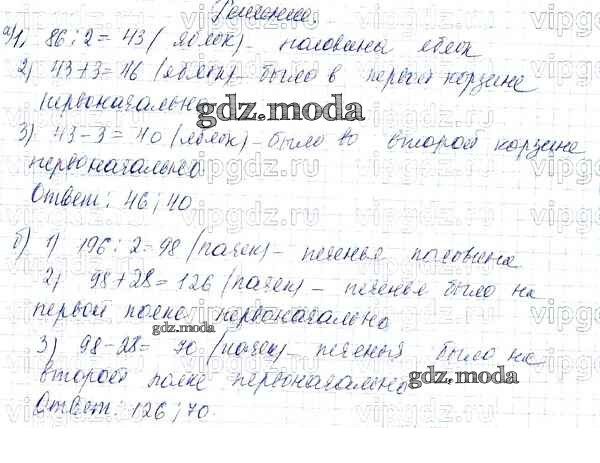 Решение.
а) 1. 86 : 2 = 43 ( яблок) - половина яблок
2) 43+3=46 (яблок) - было в первой корзине
первоначально
gdz.moda
3) 43 - 3 = 40 (яблок) - было во второй корзине
первоначально
Ответ: 46; 40
б) 1) 196 : 2 = 98 (пачек) - печенья половина
2) 98 + 28 = 126 (пачек) - печенья было на
первой полке первоначально
gdz.moda
3) 98 - 28 = 70 (пачек) - печенья было на
второй полке первоначально
gdz.moda
Ответ: 126; 70.
vipgdz.ru